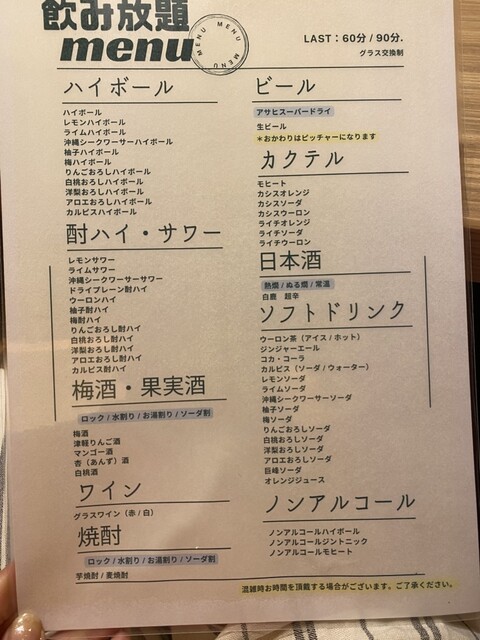 飲み放題
menu
MENU MENU MENU
LAST：60分 / 90分.
グラス交換制
ハイボール
ハイボール
レモンハイボール
ライムハイボール
沖縄シークワーサーハイボール
柚子ハイボール
梅ハイボール
りんごおろしハイボール
白桃おろしハイボール
洋梨おろしハイボール
アロエおろしハイボール
カルピスハイボール
酎ハイ・サワー
レモンサワー
ライムサワー
沖縄シークワーサーサワー
ドライプレーン酎ハイ
ウーロンハイ
柚子酎ハイ
梅酎ハイ
りんごおろし酎ハイ
白桃おろし酎ハイ
洋梨おろし酎ハイ
アロエおろし酎ハイ
カルピス酎ハイ
梅酒・果実酒
ロック / 水割り / お湯割り / ソーダ割
梅酒
津軽りんご酒
マンゴー酒
杏（あんず）酒
白桃酒
ワイン
グラスワイン（赤 / 白）
焼酎
ロック / 水割り / お湯割り / ソーダ割
芋焼酎 / 麦焼酎
ビール
アサヒスーパードライ
生ビール
＊おかわりはピッチャーになります
カクテル
モヒート
カシスオレンジ
カシスソーダ
カシスウーロン
ライチオレンジ
ライチソーダ
ライチウーロン
日本酒
熱燗 / ぬる燗 / 常温
白鹿 超辛
ソフトドリンク
ウーロン茶（アイス / ホット）
ジンジャーエール
コカ・コーラ
カルピス（ソーダ / ウォーター）
レモンソーダ
ライムソーダ
沖縄シークワーサーソーダ
柚子ソーダ
梅ソーダ
りんごおろしソーダ
白桃おろしソーダ
洋梨おろしソーダ
アロエおろしソーダ
巨峰ソーダ
オレンジジュース
ノンアルコール
ノンアルコールハイボール
ノンアルコールジントニック
ノンアルコールモヒート
混雑時お時間を頂戴する場合がございます、ご了承ください。